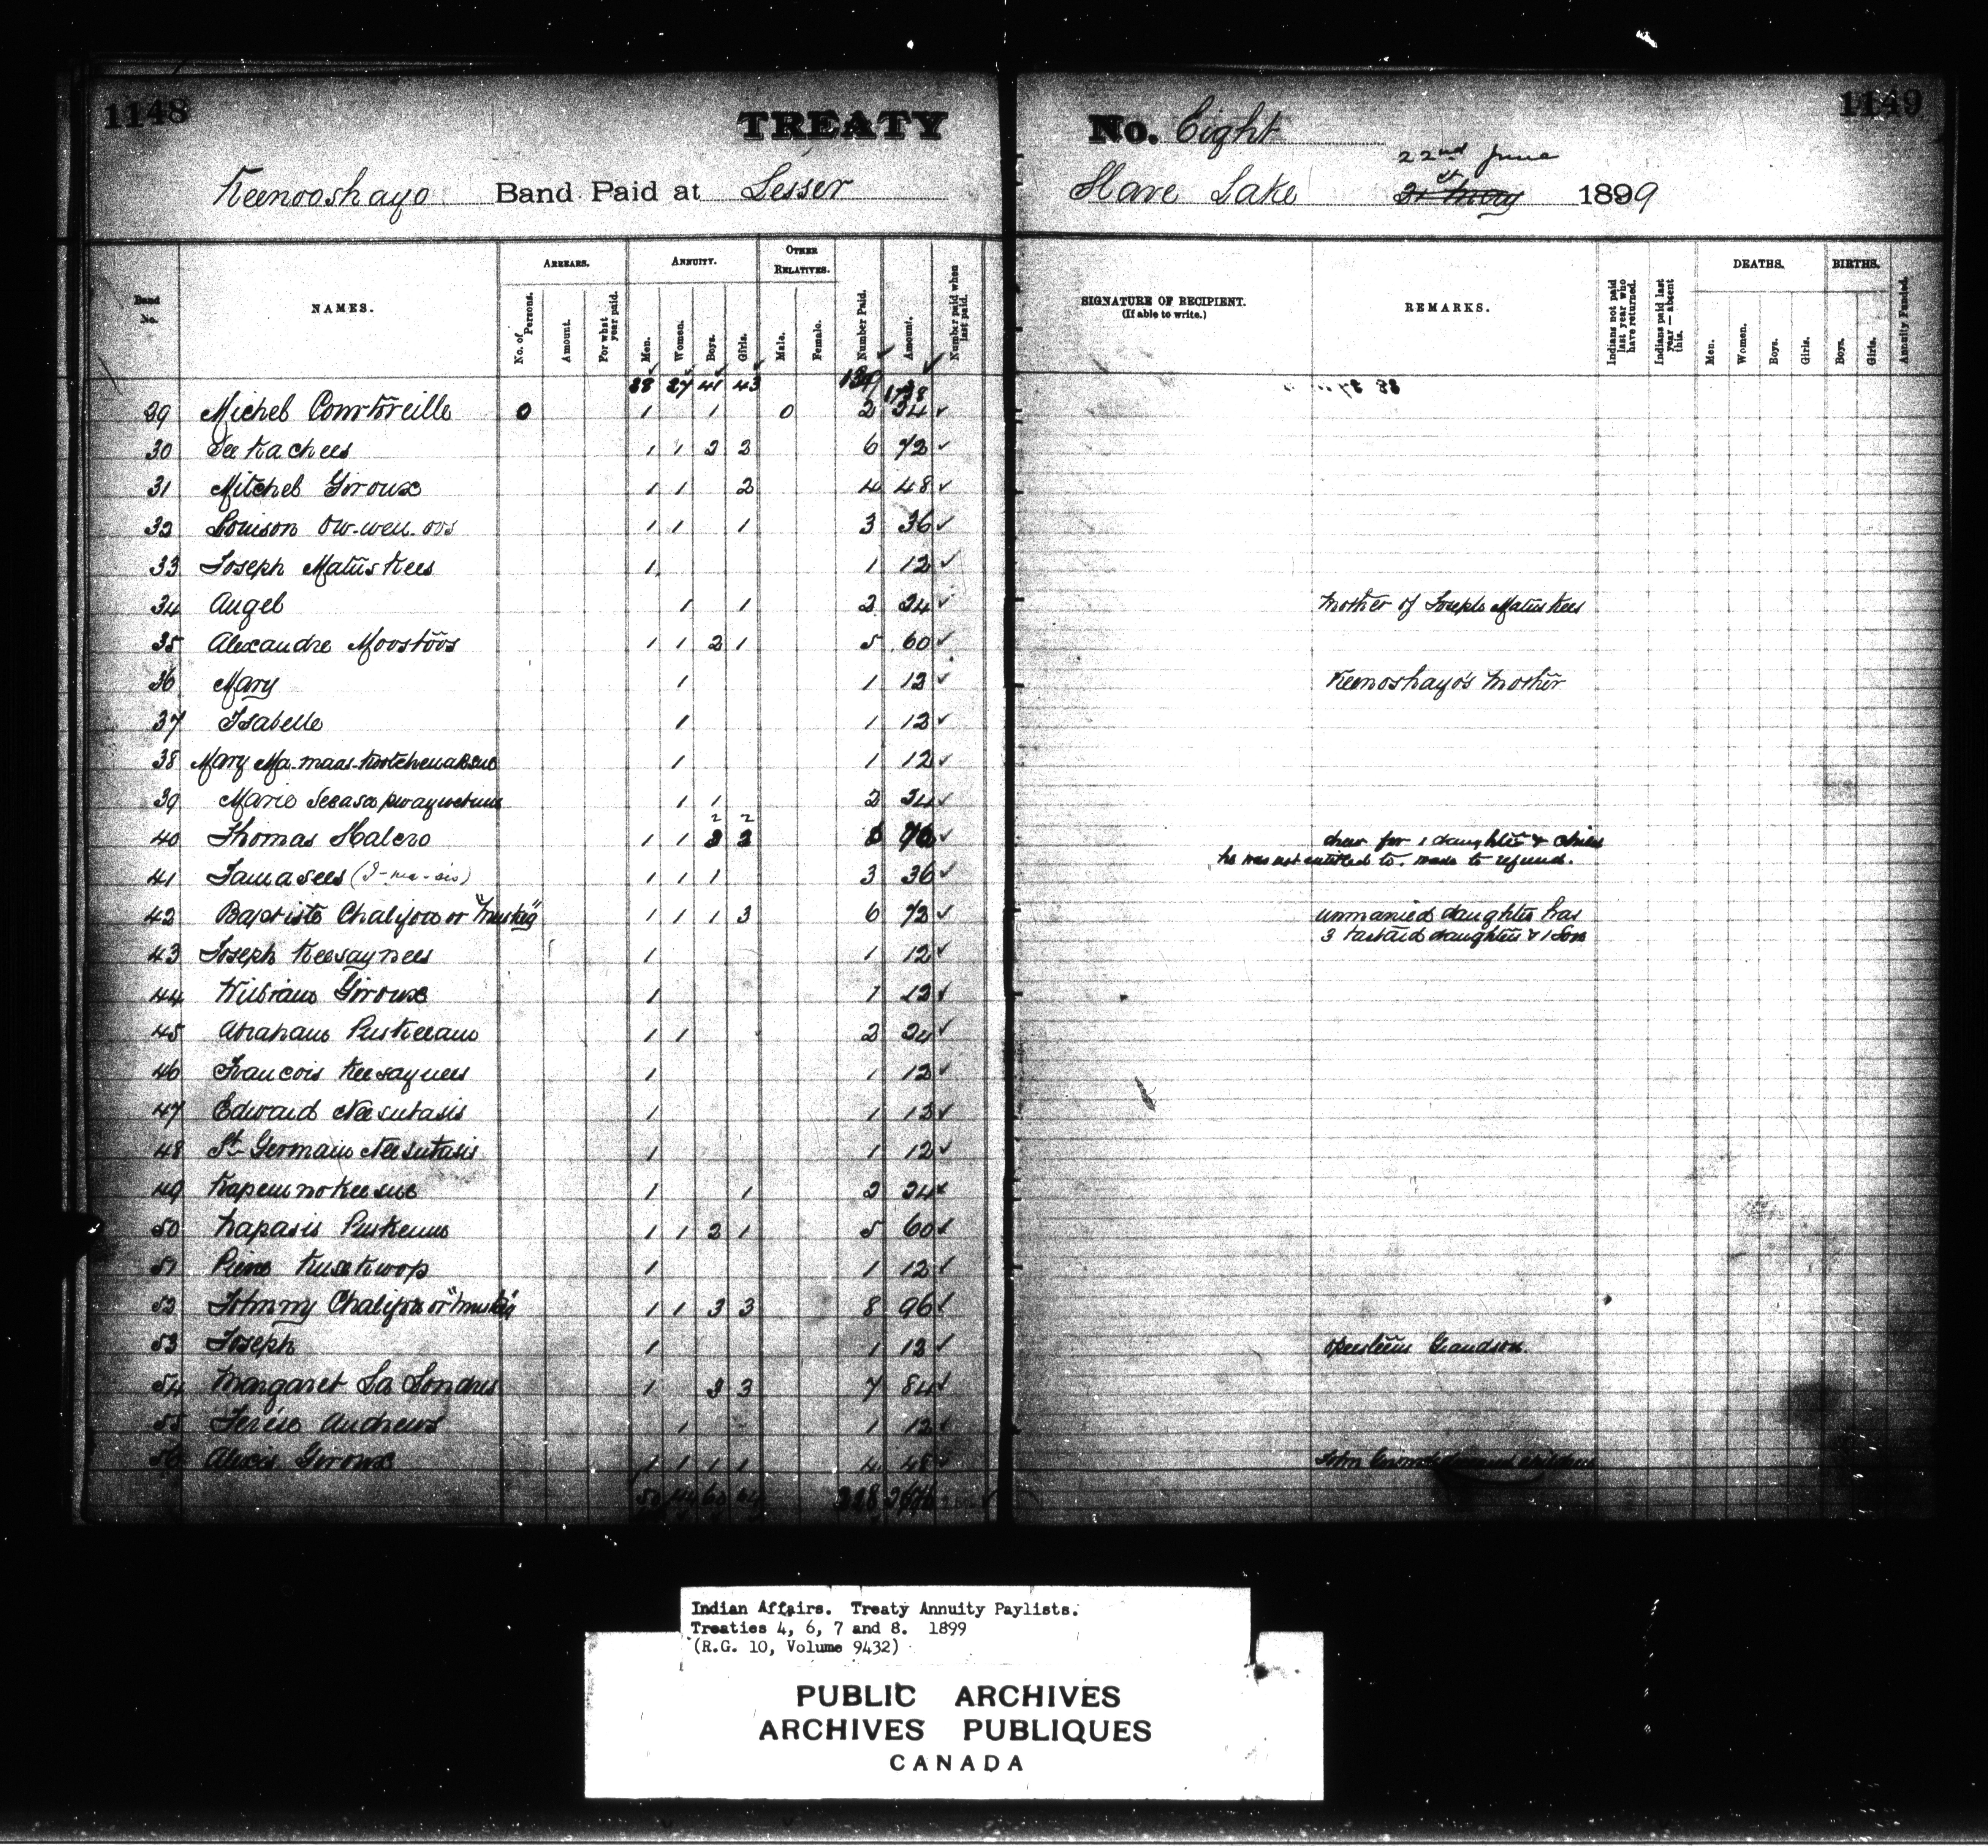 1148
TREATY No. Eight
1149
22nd June
Keenooshayo Band Paid at Lesser Slave Lake 31st May 1899
Band No.
NAMES.
ARREARS.
No. of Persons.
Amount.
For what year paid.
ANNUITY.
Men.
Women.
Boys.
Girls.
OTHER RELATIVES.
Male.
Female.
Number Paid.
Amount.
Number paid when last paid.
SIGNATURE OF RECIPIENT.
(If able to write.)
REMARKS.
Indians not paid last year who have returned.
Indians paid last year — absent this.
DEATHS.
Men.
Women.
Boys.
Girls.
BIRTHS.
Boys.
Girls.
Annuity Funded.
28 27 41 43 139 1738
29 Michel Courtoreille 0 1 1 0 2 24 ✓
30 See kachees 1 1 2 2 6 72 ✓
31 Mitchel Giroux 1 1 2 4 48 ✓
32 Louison Ow-wen-oos 1 1 1 3 36 ✓
33 Joseph Matuskees 1 1 12 ✓
34 Angel 1 1 2 24 ✓ Mother of Joseph Matuskees
35 Alexandre Moostoos 1 1 2 1 5 60 ✓
36 Mary 1 1 12 ✓ Keenoshayo's Mother
37 Isabelle 1 1 12 ✓
38 Mary 1 1 12 ✓
39 Marie 1 1 2 24 ✓
40 Thomas Halcro 1 1 2 2 6 72 ✓ drew for 1 daughter & child
he was not entitled to. made to refund.
41 Jamasees (J-ma-sis) 1 1 1 3 36 ✓
42 Baptiste Chalifoux or "Muskeg" 1 1 1 3 6 72 ✓ unmarried daughter has
3 bastard daughters & 1 Son
43 Joseph Keesaynees 1 1 12 ✓
44 William Giroux 1 1 12 ✓
45 Abraham 1 1 2 24 ✓
46 Francois Keesaynees 1 1 12 ✓
47 Edward Neesutasis 1 1 12 ✓
48 St Germain Neesutasis 1 1 12 ✓
49 1 1 2 24 ✓
50 Napasis 1 1 2 1 5 60 ✓
51 1 1 12 ✓
52 Johnny Chalifoux or "Muskeg" 1 1 3 3 8 96 ✓
53 Joseph 1 1 12 ✓ Grandson.
54 Margaret La Londres 1 3 3 7 84 ✓
55 Andrews 1 1 12 ✓
56 Alexis Giroux 1 1 1 1 4 48 ✓ John children
50 44 60 64
Indian Affairs. Treaty Annuity Paylists.
Treaties 4, 6, 7 and 8. 1899
(R.G. 10, Volume 9432)
PUBLIC ARCHIVES
ARCHIVES PUBLIQUES
CANADA